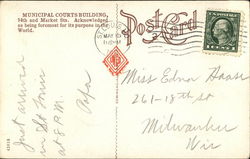 MUNICIPAL COURTS BUILDING,
14th and Market Sts. Acknowledged
as being foremost for its purpose in the
World.
Post Card
Just arrived
in St Louis
at 8 P.M.
Papa
Miss Edna Haase
261-18th St
Milwaukee
Wis